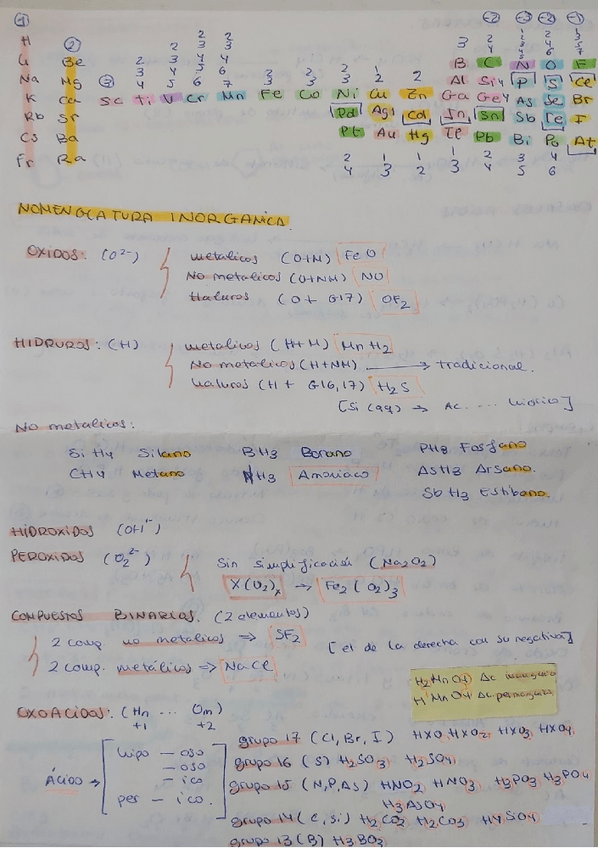 1 -2 -3 -2 -1
H 2 2 3 2 3 3 2 1 2
Li 2 Be B C N O F
Na Mg 3 Al Si P S Cl
K Ca Sc Ti V Cr Mn Fe Co Ni Cu Zn Ga Ge As Se Br
Rb Sr Pd Ag Cd In Sn Sb Te I
Cs Ba Pt Au Hg Tl Pb Bi Po At
Fr Ra 2 1 1 1 2 3 4
4 3 2 3 4 5 6
NOMENCLATURA INORGANICA.
OXIDOS: (O²⁻) metálicos (O+M) FeO
No metálicos (O+NM) NO
Haluros (O + G17) OF₂
HIDRUROS: (H) metálicos (H+M) MnH₂
No metálicos (H+NM) → tradicional.
haluros (H + G16,17) H₂S
[Si (aq) → Ac. ... hídrico]
No metálicos:
SiH4 Silano BH3 Borano PH3 Fosfano
CH4 Metano NH3 Amoniaco AsH3 Arsano.
SbH3 Estibano.
HIDROXIDOS (OH⁻)
PEROXIDOS (O₂²⁻) Sin simplificación (Na2O2)
X(O₂)ₓ → Fe₂(O₂)₃
COMPUESTOS BINARIOS. (2 elementos)
2 comp no metálicos ⇒ SF₂ [el de la derecha con su negativo]
2 comp. metálicos ⇒ NaCl
H₂MnO4 Ac. manganico
HMnO4 Ac. permanganico
OXOACIDOS: (Hn ... Om)
+1 +2
Ácido → hipo – oso
– oso
– ico
per – ico.
grupo 17 (Cl, Br, I) HXO HXO₂ HXO₃ HXO₄
grupo 16 (S) H₂SO₃ H₂SO₄
grupo 15 (N,P,As) HNO₂ HNO₃ H₃PO₃ H₃PO4
H₃AsO4
grupo 14 (C, Si) H₂CO₂ H₂CO₃ H4SO4
grupo 13 (B) H3BO3